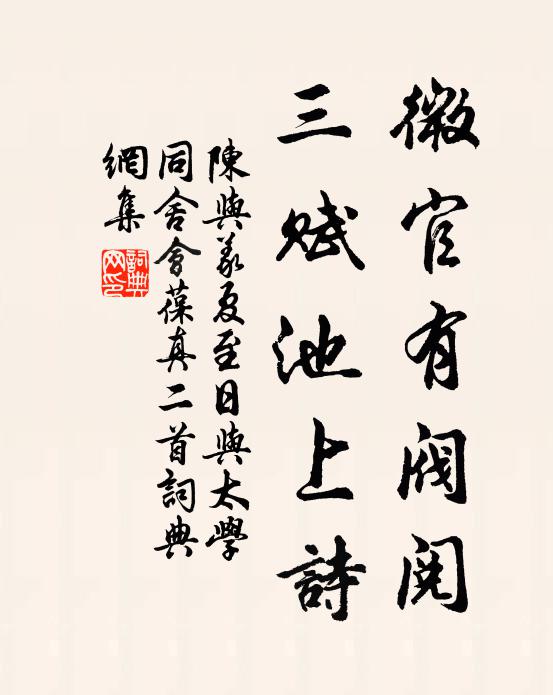 微官有阀阅
三赋池上詩
陳與義夏至日與太學
同舍會葆真二首詞典
網集
詞典
网印